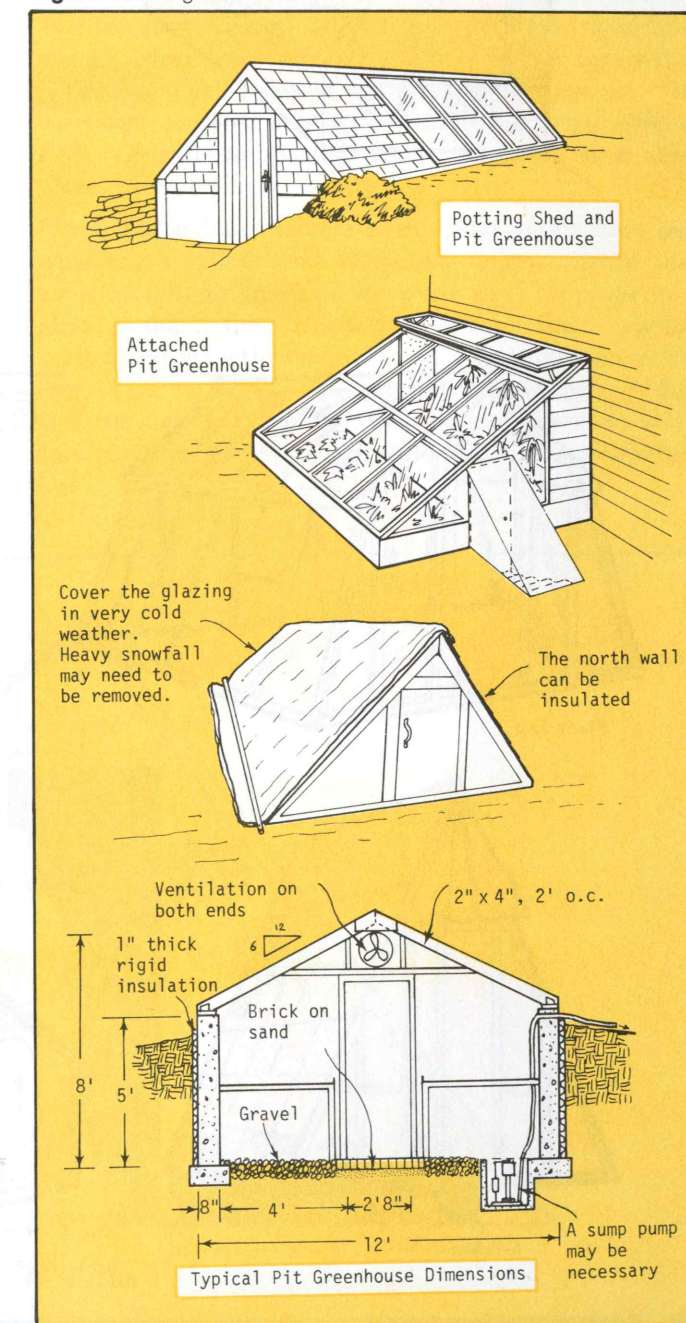 Potting Shed and
Pit Greenhouse
Attached
Pit Greenhouse
Cover the glazing
in very cold
weather.
Heavy snowfall
may need to
be removed.
The north wall
can be
insulated
Ventilation on
both ends
2" x 4", 2' o.c.
12
6
1" thick
rigid
insulation
Brick on
sand
8'
5'
Gravel
8"
4'
2'8"
12'
A sump pump
may be
necessary
Typical Pit Greenhouse Dimensions